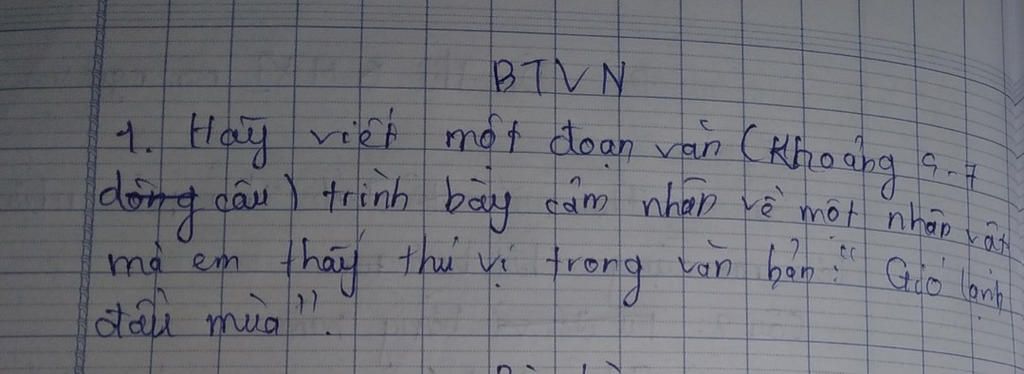 BTVN
1. Hãy viết một đoạn văn (Khoảng 5-7
dòng câu) trình bày cảm nhận về một nhân vật
mà em thấy thú vị trong văn bản: "Gió lạnh
đầu mùa".